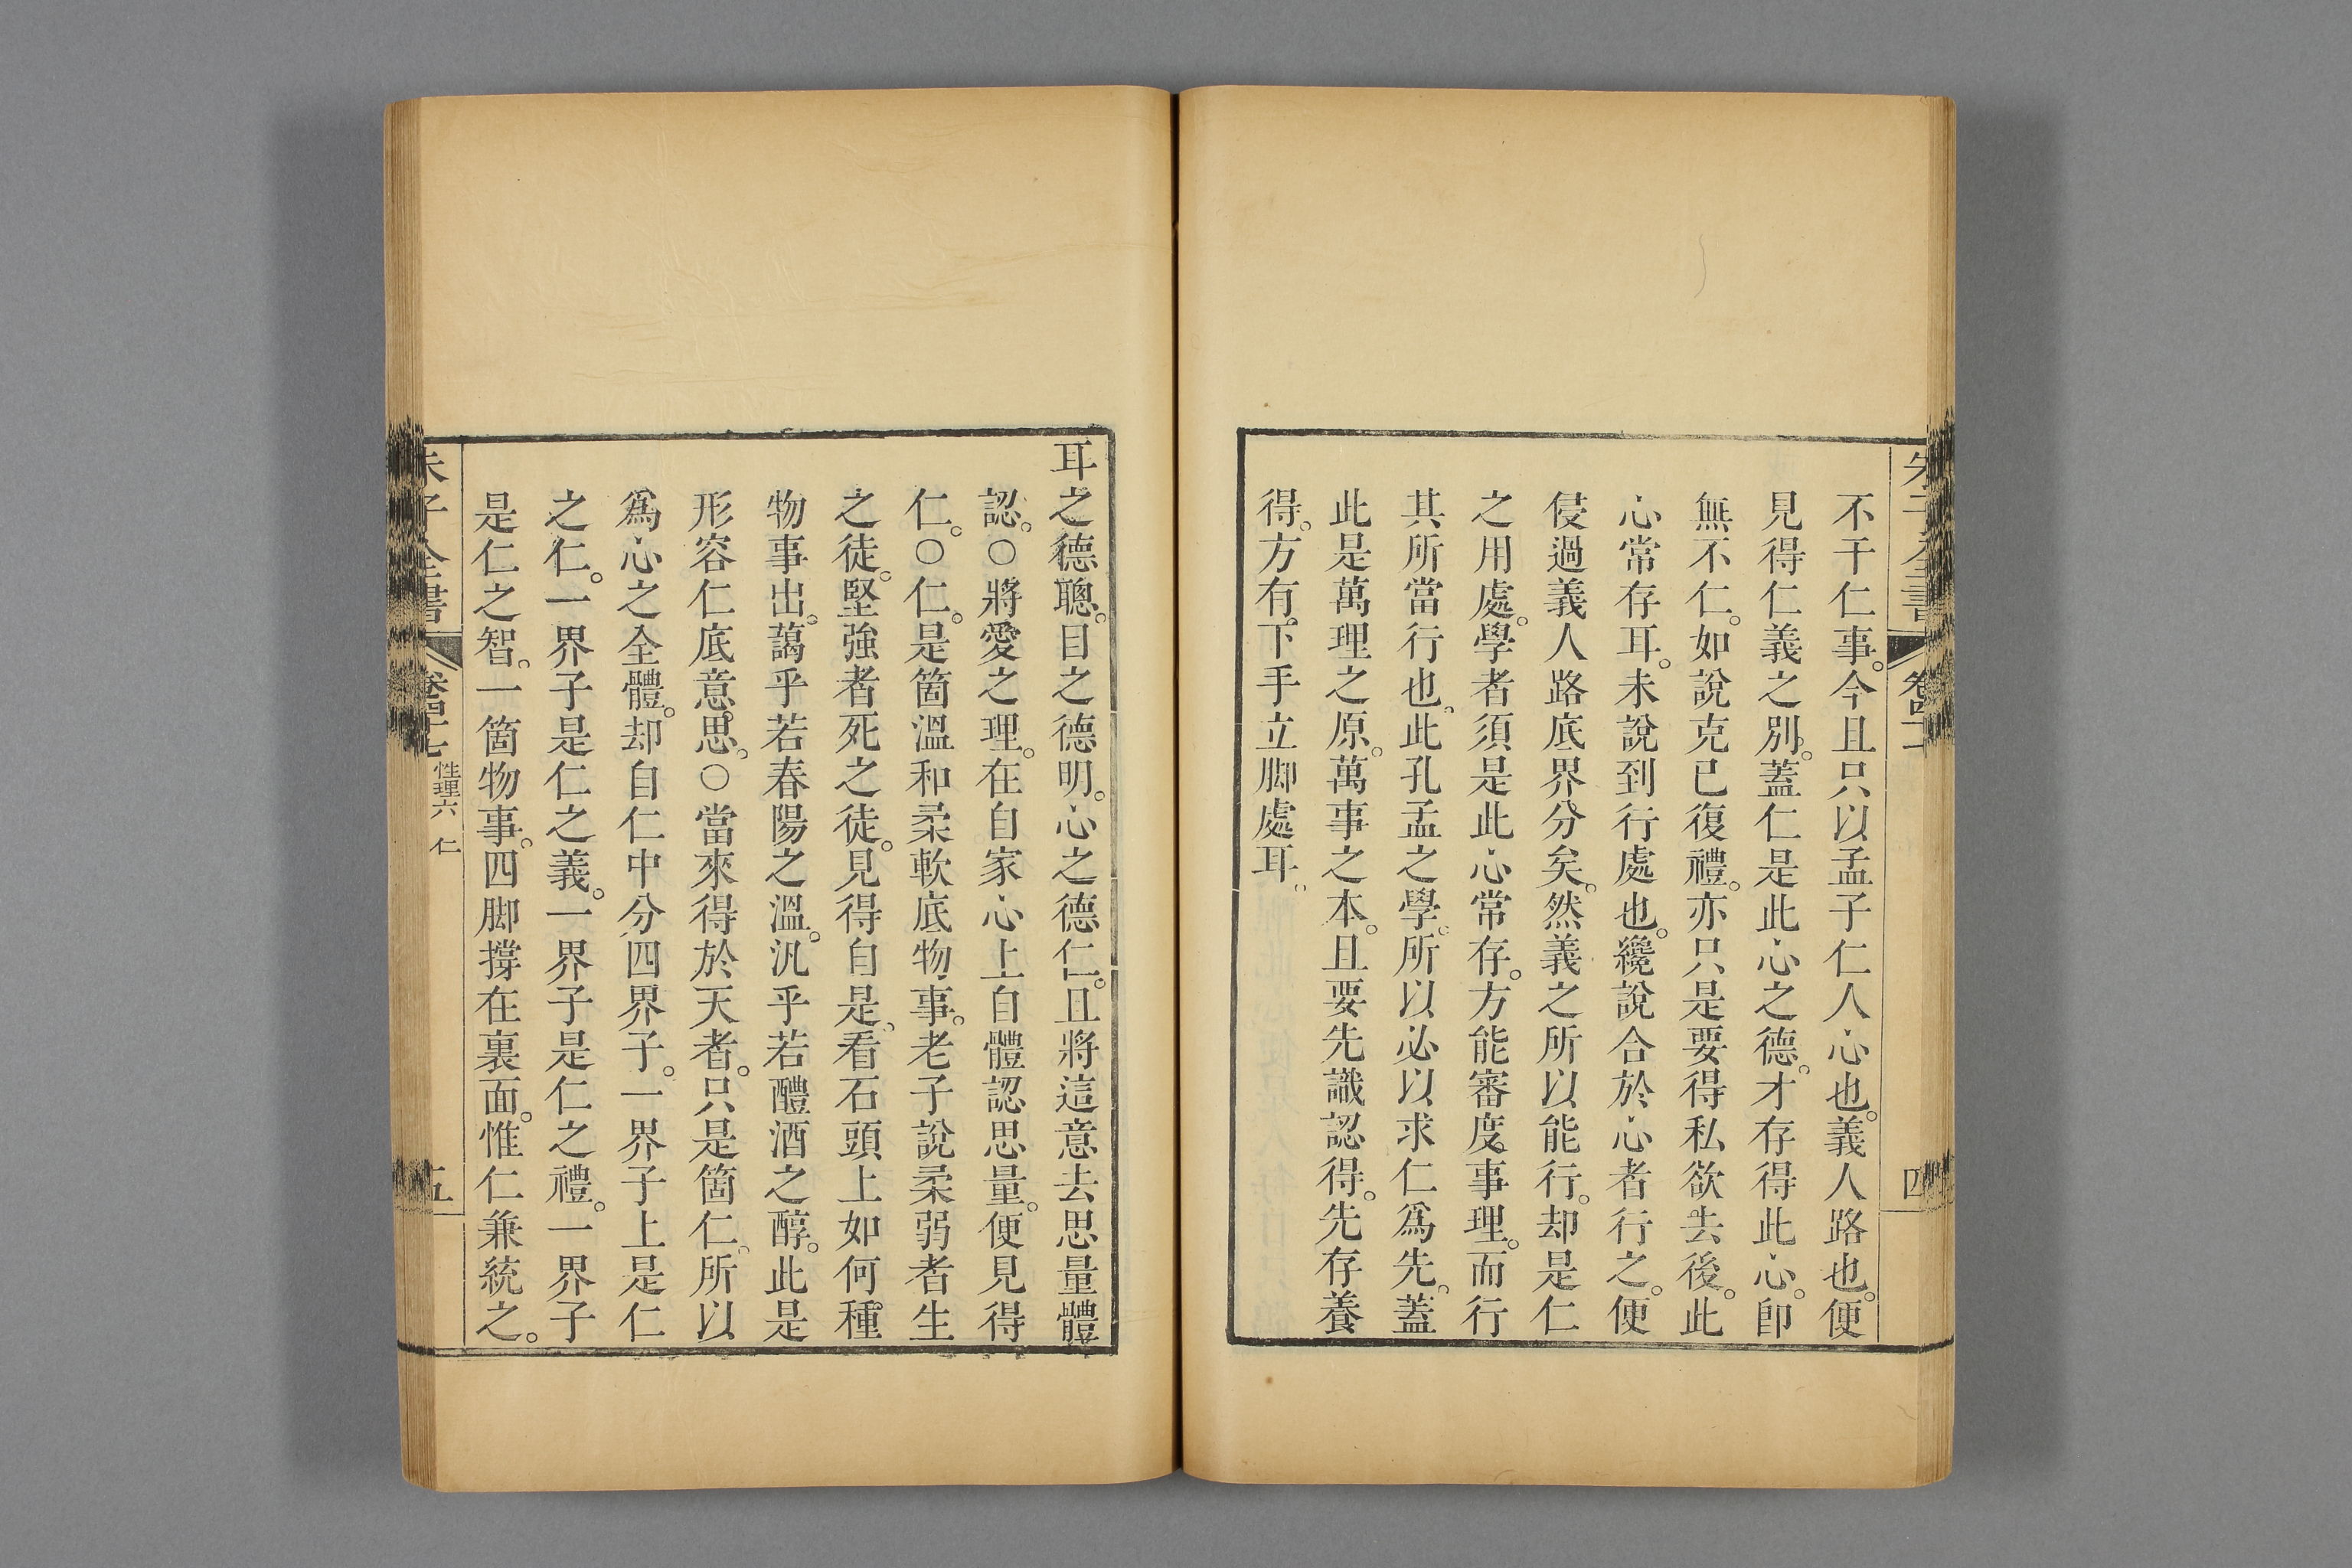 朱子全書 卷四十七 四
不干仁事。今且只以孟子仁人心也。義人路也。便
見得仁義之別。蓋仁是此心之德。才存得此心。卽
無不仁。如說克己復禮。亦只是要得私欲去後。此
心常存耳。未說到行處也。纔說合於心者行之。便
侵過義人路底界分矣。然義之所以能行。却是仁
之用處。學者須是此心常存。方能審度事理。而行
其所當行也。此孔孟之學。所以必以求仁爲先。蓋
此是萬理之原。萬事之本。且要先識認得。先存養
得。方有下手立脚處耳。
耳之德聰。目之德明。心之德仁。且將這意去思量體
認。○將愛之理。在自家心上自體認思量。便見得
仁。○仁。是箇溫和柔軟底物事。老子說柔弱者生
之徒。堅強者死之徒。見得自是。看石頭上如何種
物事出。藹乎若春陽之溫。汎乎若醴酒之醇。此是
形容仁底意思。○當來得於天者。只是箇仁。所以
爲心之全體。却自仁中分四界子。一界子上是仁
之仁。一界子是仁之義。一界子是仁之禮。一界子
是仁之智。一箇物事。四脚撐在裏面。惟仁兼統之。
朱子全書 卷四十七 性理六 仁 五